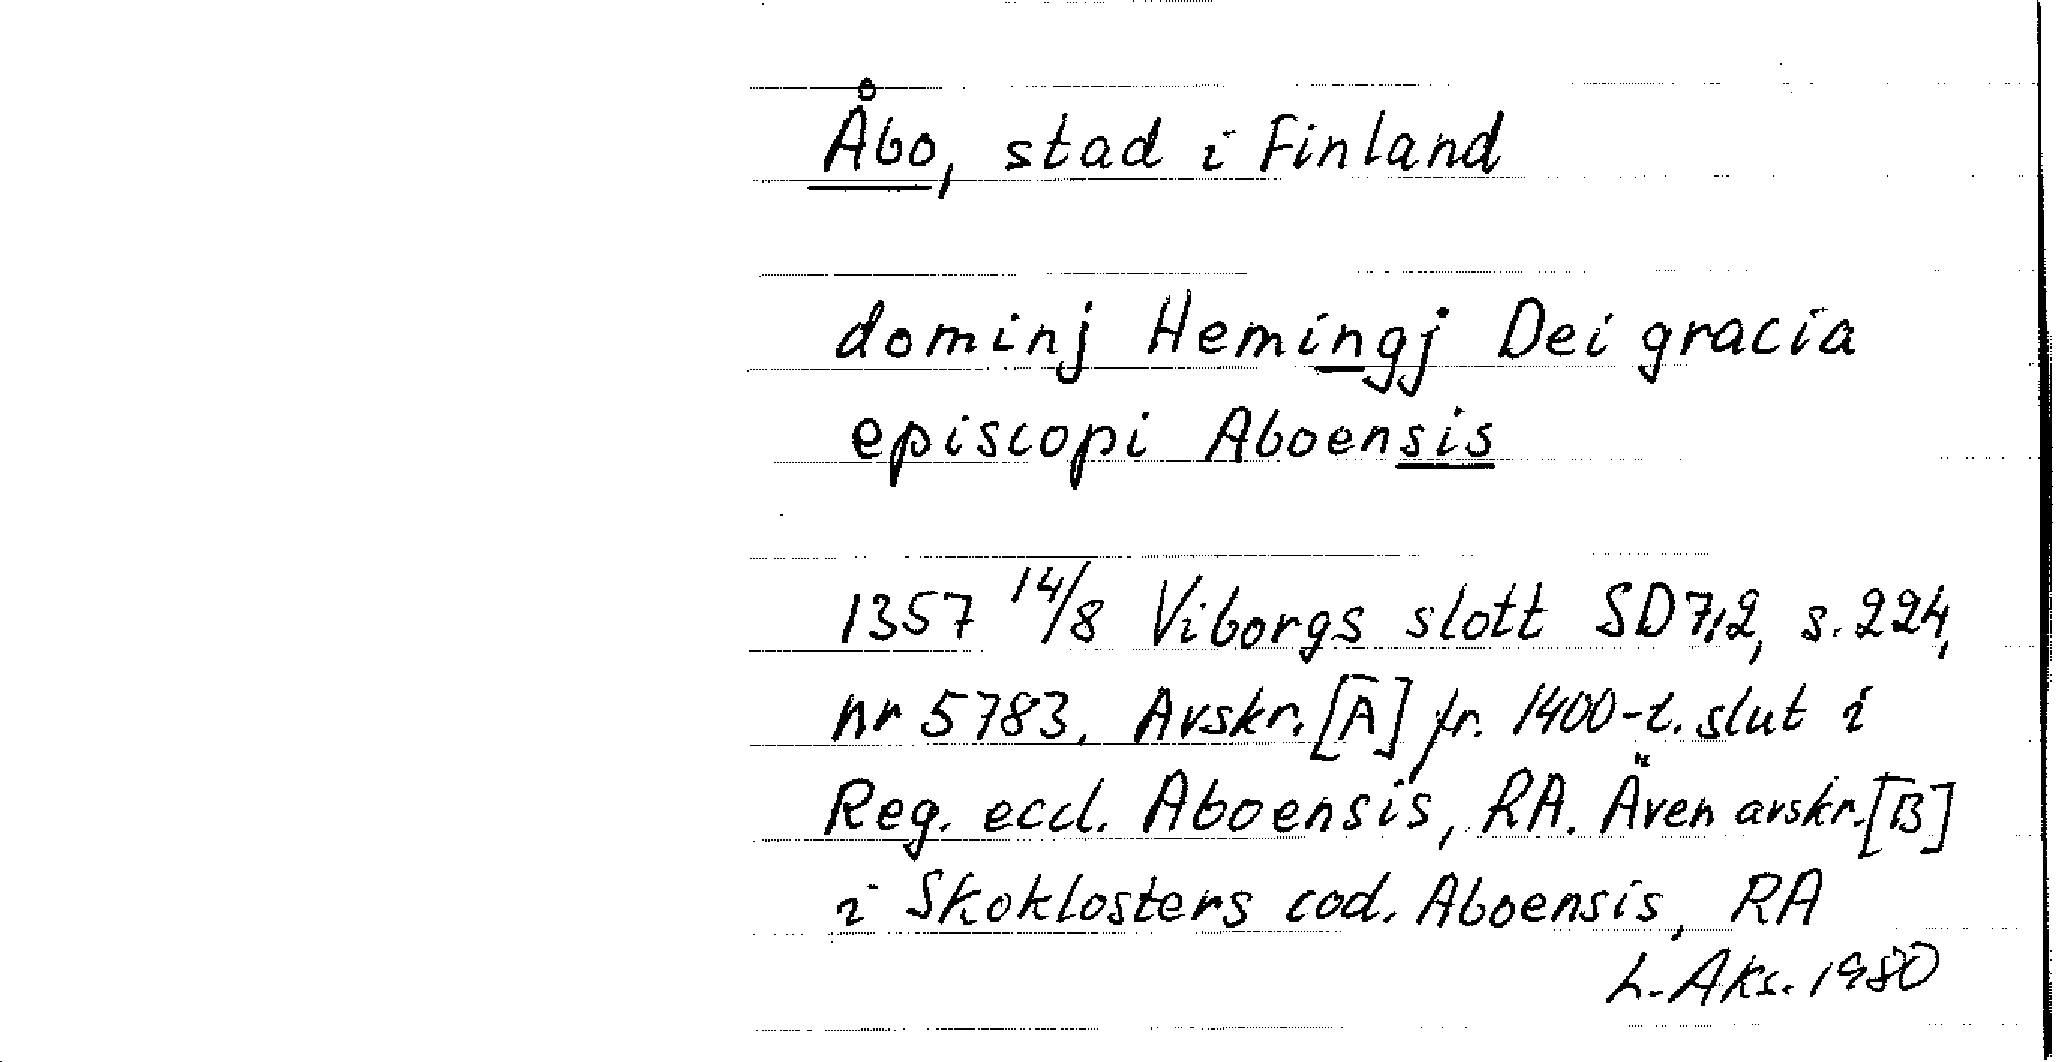 Åbo, stad i Finland
dominj Hemingj Dei gracia
episcopi Aboensis
1357 14/8 Viborgs slott SD7,2, s. 224,
nr 5783. Avskr. [A] fr. 1400-t. slut i
Reg. eccl. Aboensis, RA. Även avskr. [B]
i Skoklosters cod. Aboensis, RA
L. Aks. 1980